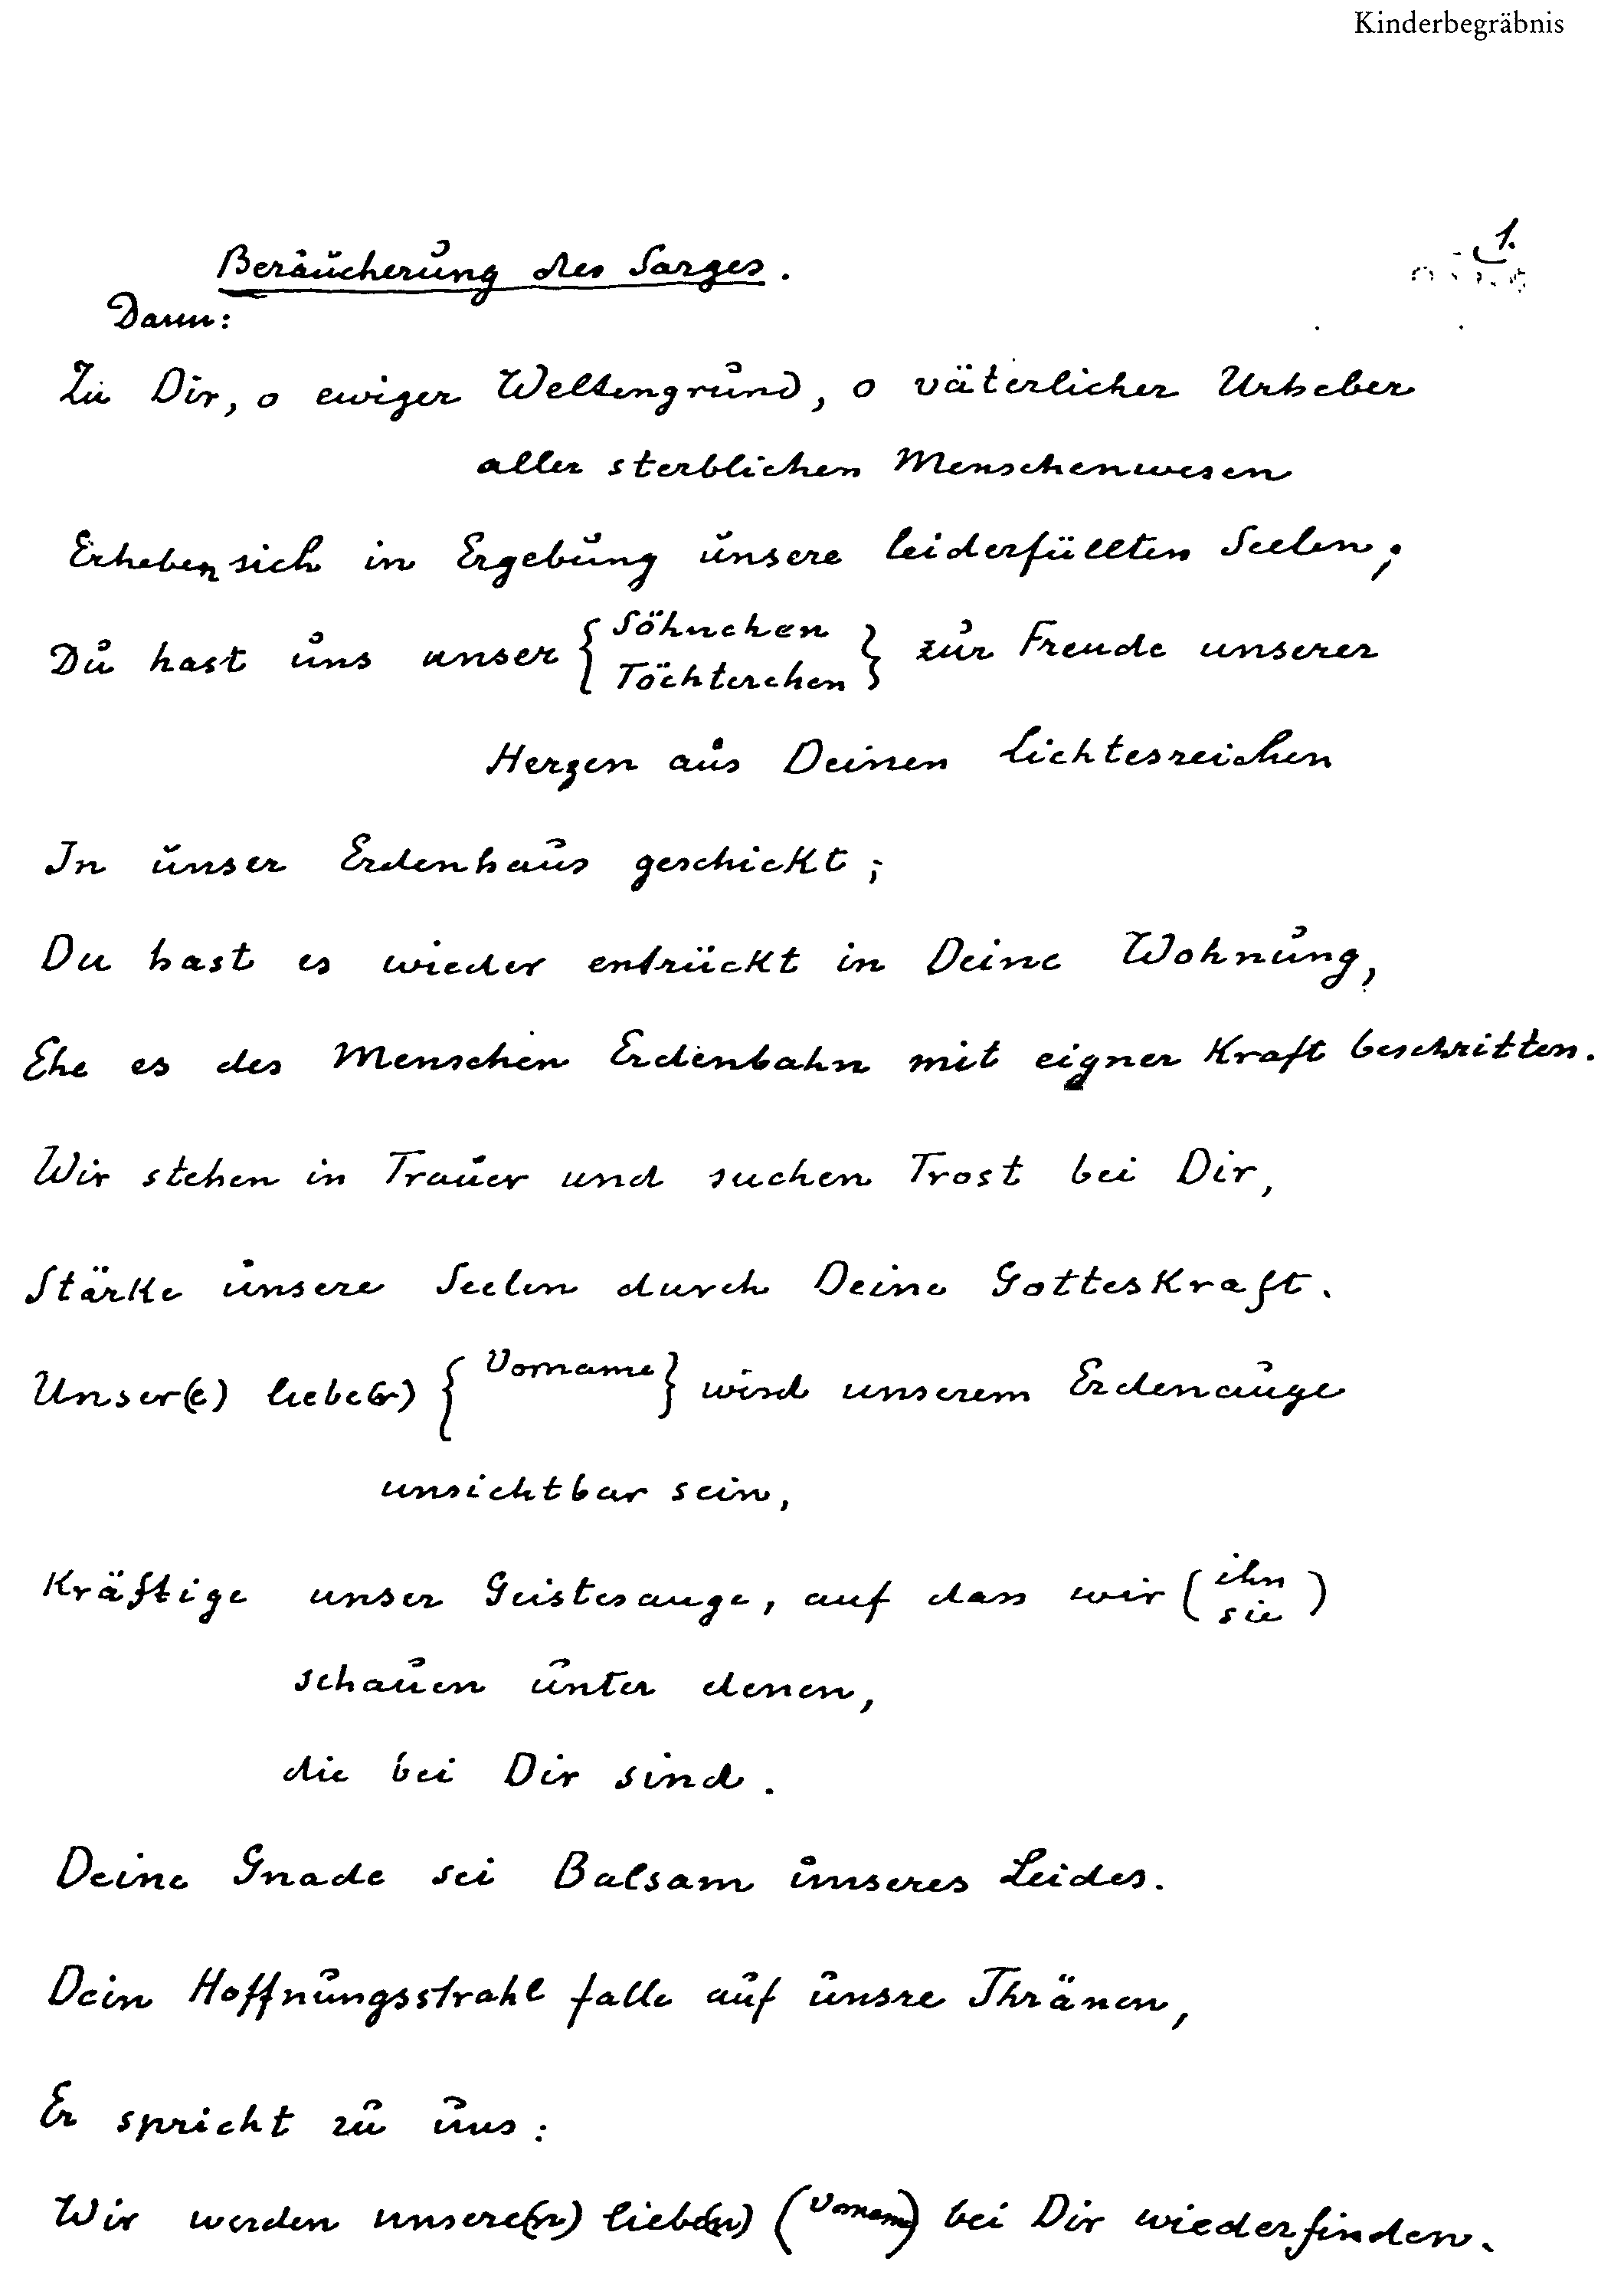 Kinderbegräbnis
1.
Beräucherung des Sarges.
Dann:
Zu Dir, o ewiger Weltengrund, o väterlicher Urheber
aller sterblichen Menschenwesen
Erheben sich in Ergebung unsere leiderfüllten Seelen;
Du hast uns unser { Söhnchen Töchterchen } zur Freude unserer
Herzen aus Deinen Lichtesreichen
In unser Erdenhaus geschickt;
Du hast es wieder entrückt in Deine Wohnung,
Ehe es des Menschen Erdenbahn mit eigner Kraft beschritten.
Wir stehen in Trauer und suchen Trost bei Dir,
Stärke unsere Seelen durch Deine Gotteskraft.
Unser(e) liebe(r) { Vorname } wird unserem Erdenauge
unsichtbar sein,
Kräftige unser Geistesauge, auf dass wir ( ihn sie )
schauen unter denen,
die bei Dir sind.
Deine Gnade sei Balsam unseres Leides.
Dein Hoffnungsstrahl falle auf unsre Thränen,
Er spricht zu uns:
Wir werden unsere(n) liebe(n) (Vorname) bei Dir wiederfinden.